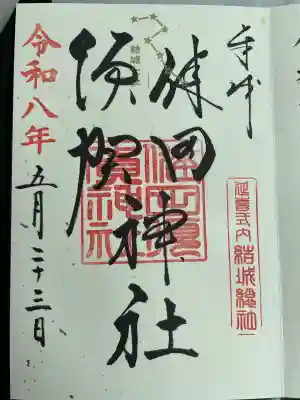 奉拝
延喜式内 結城總社
健田神社
須賀
健田須賀神社
令和八年五月二十三日